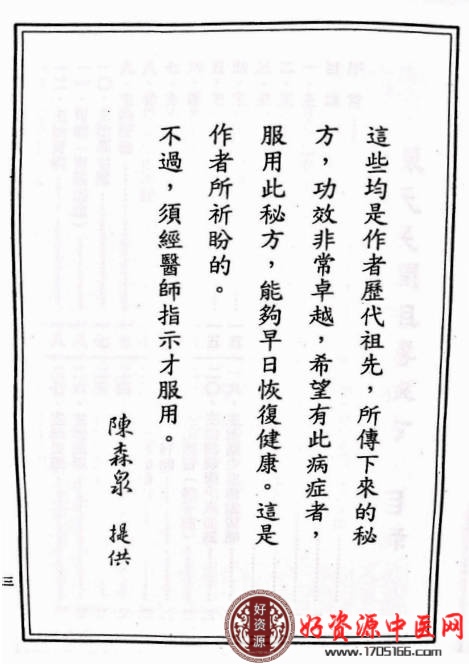 這些均是作者歷代祖先，所傳下來的秘
方，功效非常卓越，希望有此病症者，
服用此秘方，能夠早日恢復健康。這是
作者所祈盼的。
不過，須經醫師指示才服用。
陳森泉 提供
三
好资源
好资源中医网
www.1705166.com